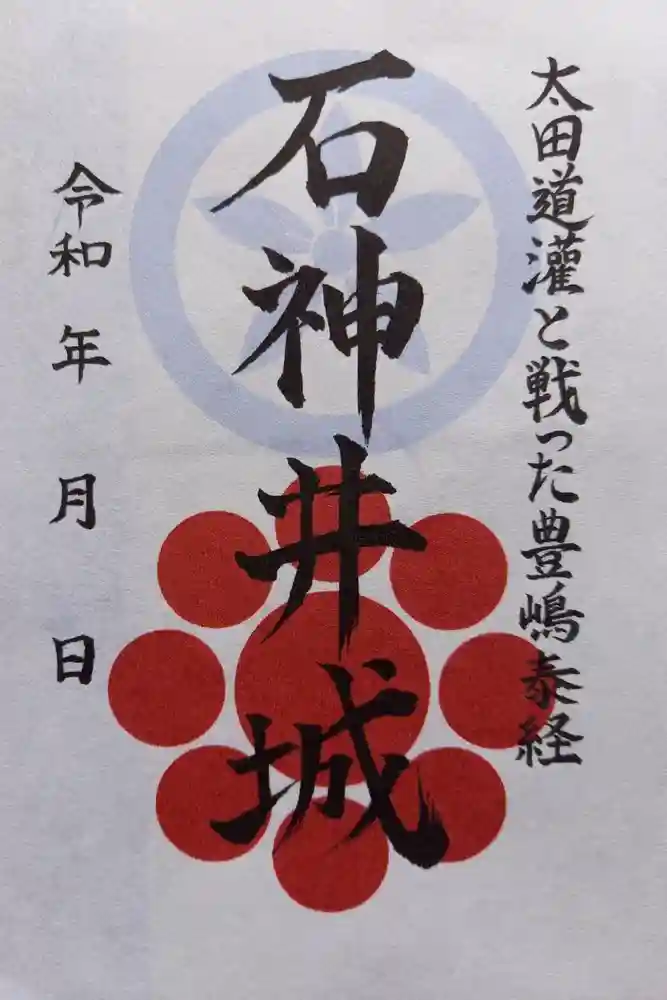 太田道灌と戦った豊嶋泰経
石神井城
令和 年 月 日